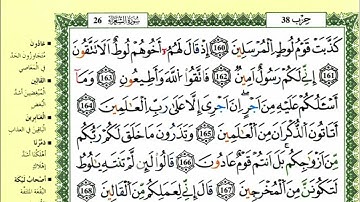 حزب 38
سورة الشعراء 26
كَذَّبَتْ قَوْمُ لُوطٍ الْمُرْسَلِينَ 160 إِذْ قَالَ لَهُمْ أَخُوهُمْ لُوطٌ أَلَا تَتَّقُونَ
161 إِنِّي لَكُمْ رَسُولٌ أَمِينٌ 162 فَاتَّقُوا اللَّهَ وَأَطِيعُونِ 163 وَمَا
أَسْـَٔلُكُمْ عَلَيْهِ مِنْ أَجْرٍ إِنْ أَجْرِيَ إِلَّا عَلَىٰ رَبِّ الْعَالَمِينَ 164
أَتَأْتُونَ الذُّكْرَانَ مِنَ الْعَالَمِينَ 165 وَتَذَرُونَ مَا خَلَقَ لَكُمْ رَبُّكُمْ
مِنْ أَزْوَاجِكُمْ بَلْ أَنْتُمْ قَوْمٌ عَادُونَ 166 قَالُوا لَئِنْ لَمْ تَنْتَهِ يَا لُوطُ
لَتَكُونَنَّ مِنَ الْمُخْرَجِينَ 167 قَالَ إِنِّي لِعَمَلِكُمْ مِنَ الْقَالِينَ 168
عَادُونَ
متجاوزون الحد
في المعاصي
القالين
المبغضين أشد
البغض
الغابرين
الباقين في العذاب
دمرنا
أهلكنا أشد
أصحاب ليكة